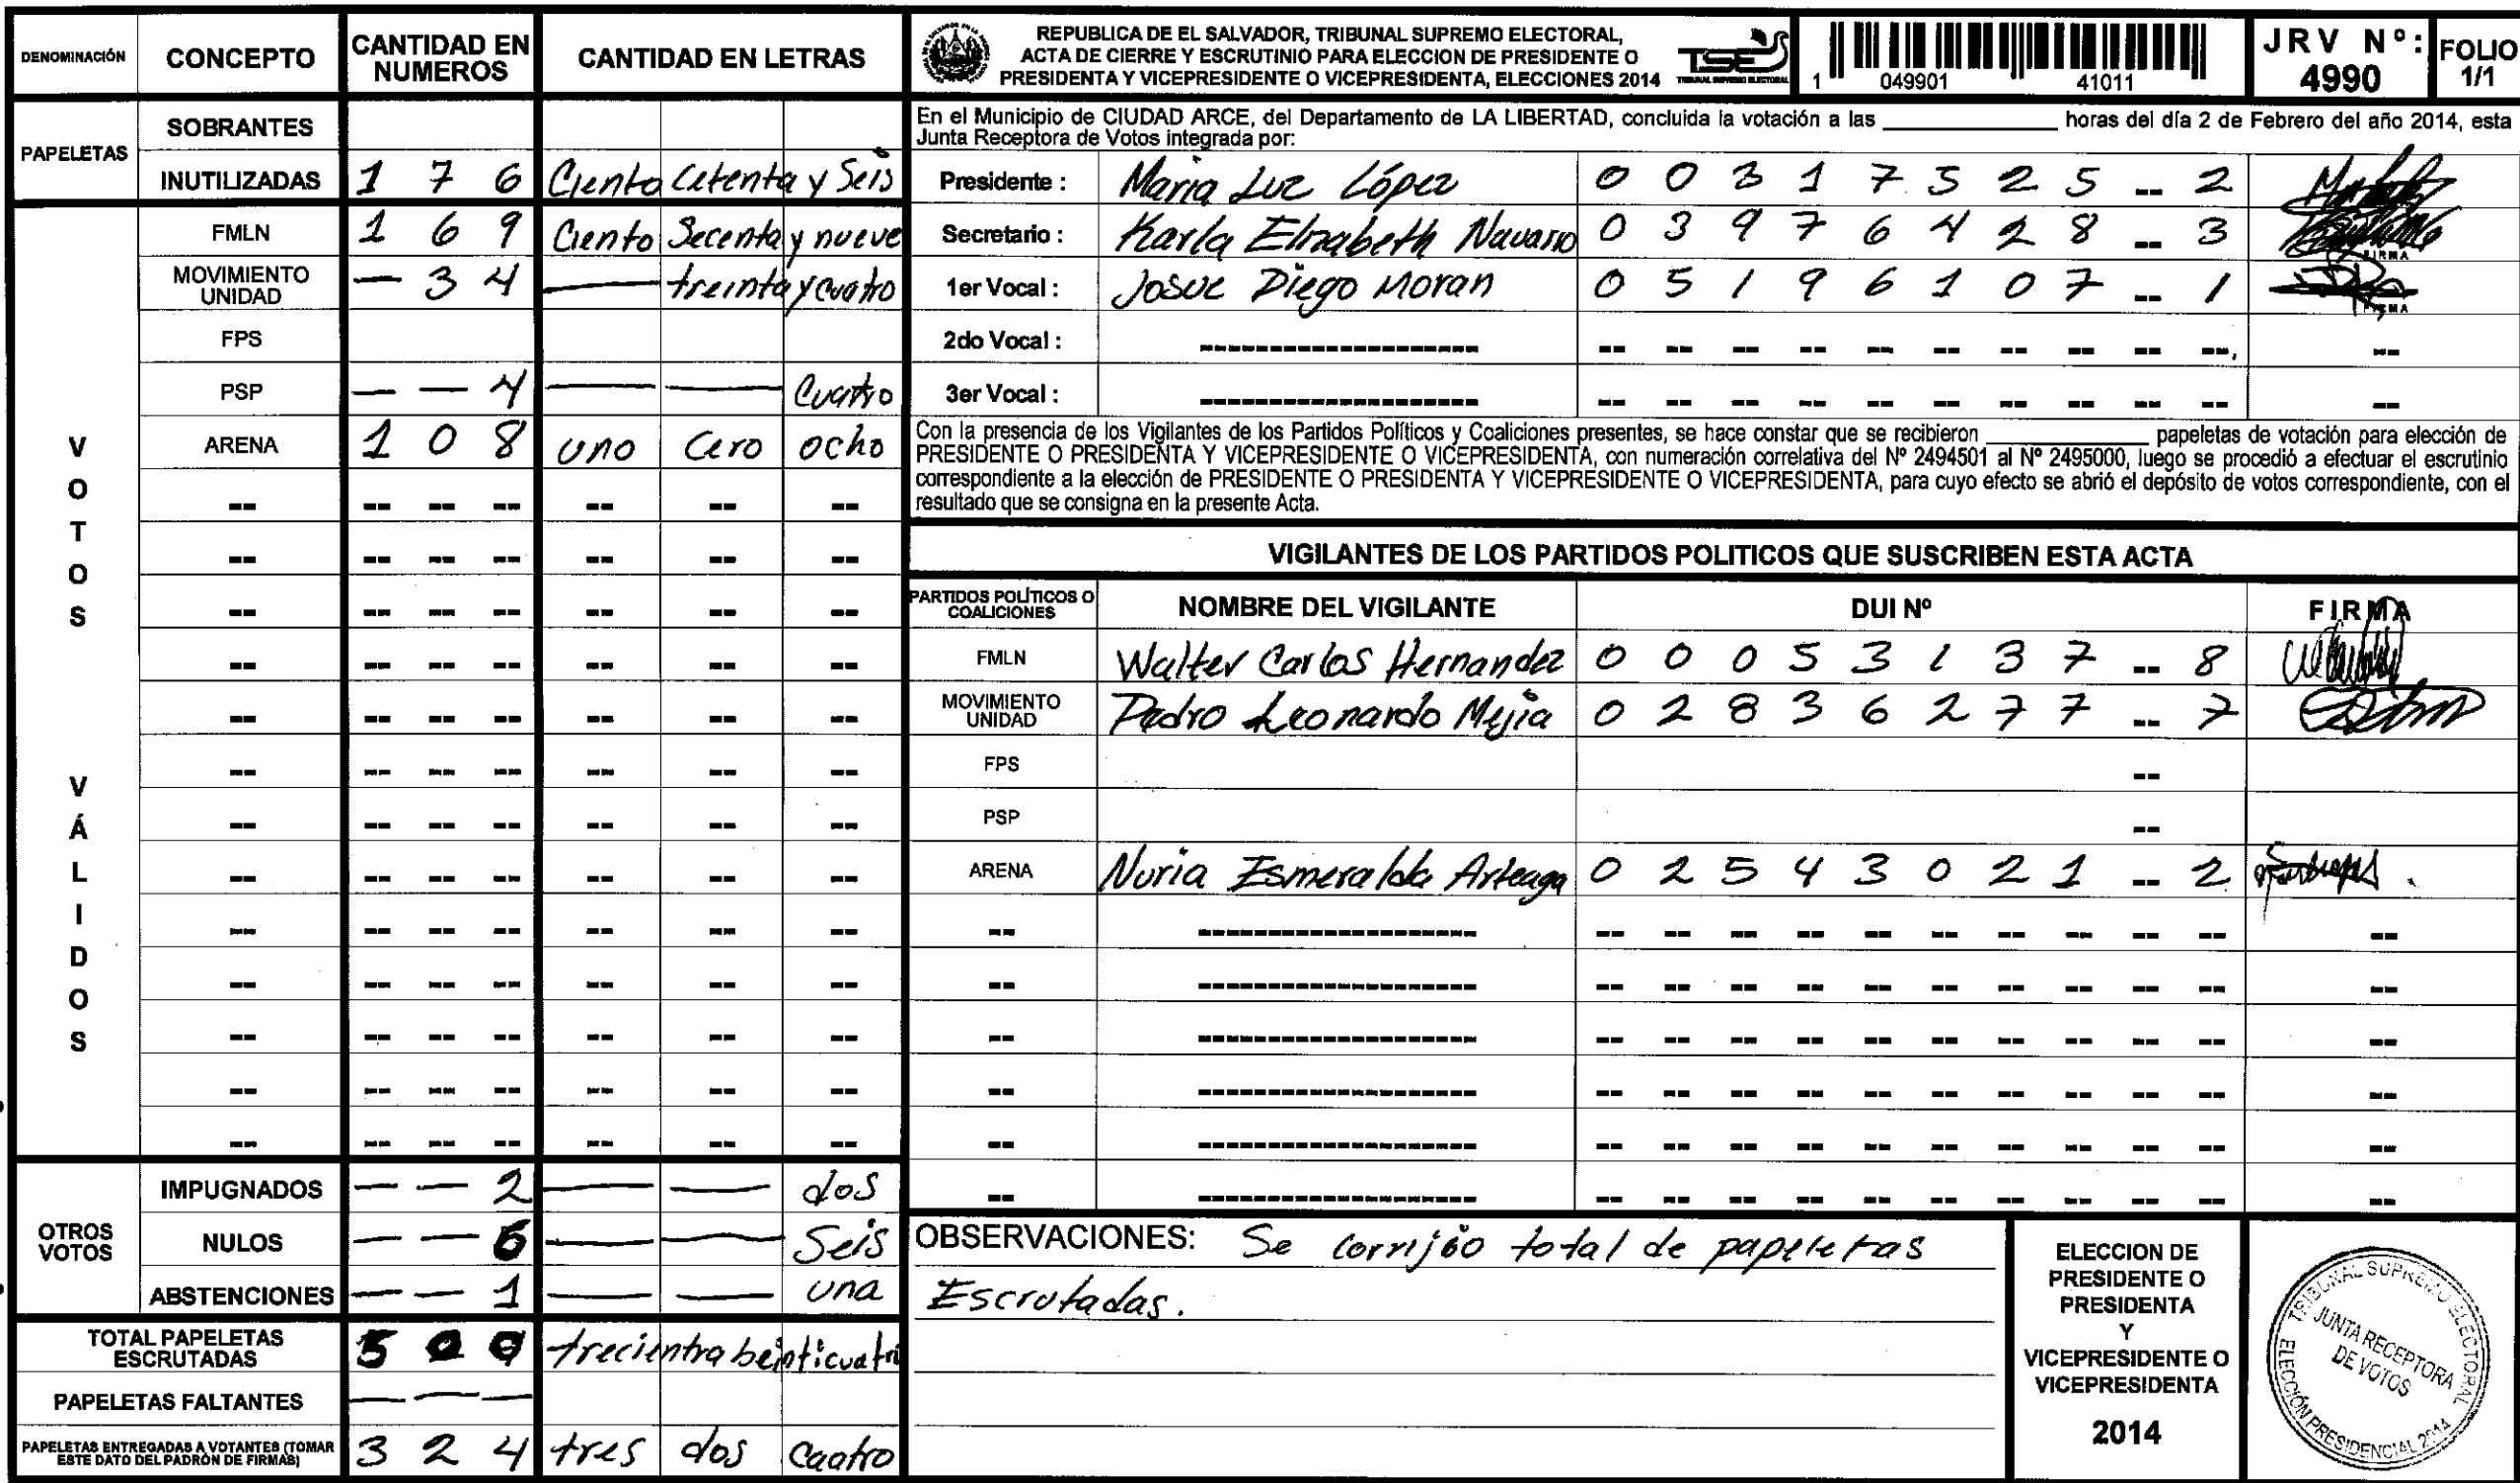 DENOMINACIÓN CONCEPTO CANTIDAD EN NUMEROS CANTIDAD EN LETRAS
PAPELETAS
SOBRANTES
INUTILIZADAS 1 7 6 Ciento Cetenta y Seis
VOTOS VÁLIDOS
FMLN 1 6 9 Ciento Secenta y nueve
MOVIMIENTO UNIDAD — 3 4 — treinta y cuatro
FPS
PSP — — 4 — — Cuatro
ARENA 1 0 8 uno Cero ocho
OTROS VOTOS
IMPUGNADOS — — 2 — — dos
NULOS — — 6 — — Seis
ABSTENCIONES — — 1 — — una
TOTAL PAPELETAS ESCRUTADAS 5 0 0 trecientra beinticuatro
PAPELETAS FALTANTES — — —
PAPELETAS ENTREGADAS A VOTANTES (TOMAR ESTE DATO DEL PADRÓN DE FIRMAS) 3 2 4 tres dos Caatro
REPUBLICA DE EL SALVADOR, TRIBUNAL SUPREMO ELECTORAL,
ACTA DE CIERRE Y ESCRUTINIO PARA ELECCION DE PRESIDENTE O
PRESIDENTA Y VICEPRESIDENTE O VICEPRESIDENTA, ELECCIONES 2014
TSE
TRIBUNAL SUPREMO ELECTORAL
1 049901 41011
JRV Nº: 4990
FOLIO 1/1
En el Municipio de CIUDAD ARCE, del Departamento de LA LIBERTAD, concluida la votación a las ____ horas del día 2 de Febrero del año 2014, esta
Junta Receptora de Votos integrada por:
Presidente : Maria Luz López 0 0 3 1 7 3 2 5 -- 2
Secretario : Karla Elizabeth Navarro 0 3 9 7 6 4 2 8 -- 3 FIRMA
1er Vocal : Josue Diego Moran 0 5 1 9 6 1 0 7 -- 1 FIRMA
2do Vocal :
3er Vocal :
Con la presencia de los Vigilantes de los Partidos Políticos y Coaliciones presentes, se hace constar que se recibieron ____ papeletas de votación para elección de
PRESIDENTE O PRESIDENTA Y VICEPRESIDENTE O VICEPRESIDENTA, con numeración correlativa del Nº 2494501 al Nº 2495000, luego se procedió a efectuar el escrutinio
correspondiente a la elección de PRESIDENTE O PRESIDENTA Y VICEPRESIDENTE O VICEPRESIDENTA, para cuyo efecto se abrió el depósito de votos correspondiente, con el
resultado que se consigna en la presente Acta.
VIGILANTES DE LOS PARTIDOS POLITICOS QUE SUSCRIBEN ESTA ACTA
PARTIDOS POLÍTICOS O COALICIONES NOMBRE DEL VIGILANTE DUI Nº FIRMA
FMLN Walter Carlos Hernandez 0 0 0 5 3 1 3 7 -- 8
MOVIMIENTO UNIDAD Pedro Leonardo Mejia 0 2 8 3 6 2 7 7 -- 7
FPS --
PSP --
ARENA Nuria Esmeralda Arteaga 0 2 5 4 3 0 2 1 -- 2
OBSERVACIONES: Se corrijio total de papeletas
Escrutadas.
ELECCION DE
PRESIDENTE O
PRESIDENTA
Y
VICEPRESIDENTE O
VICEPRESIDENTA
2014
TRIBUNAL SUPREMO ELECTORAL
JUNTA RECEPTORA
DE VOTOS
ELECCIÓN PRESIDENCIAL 2014